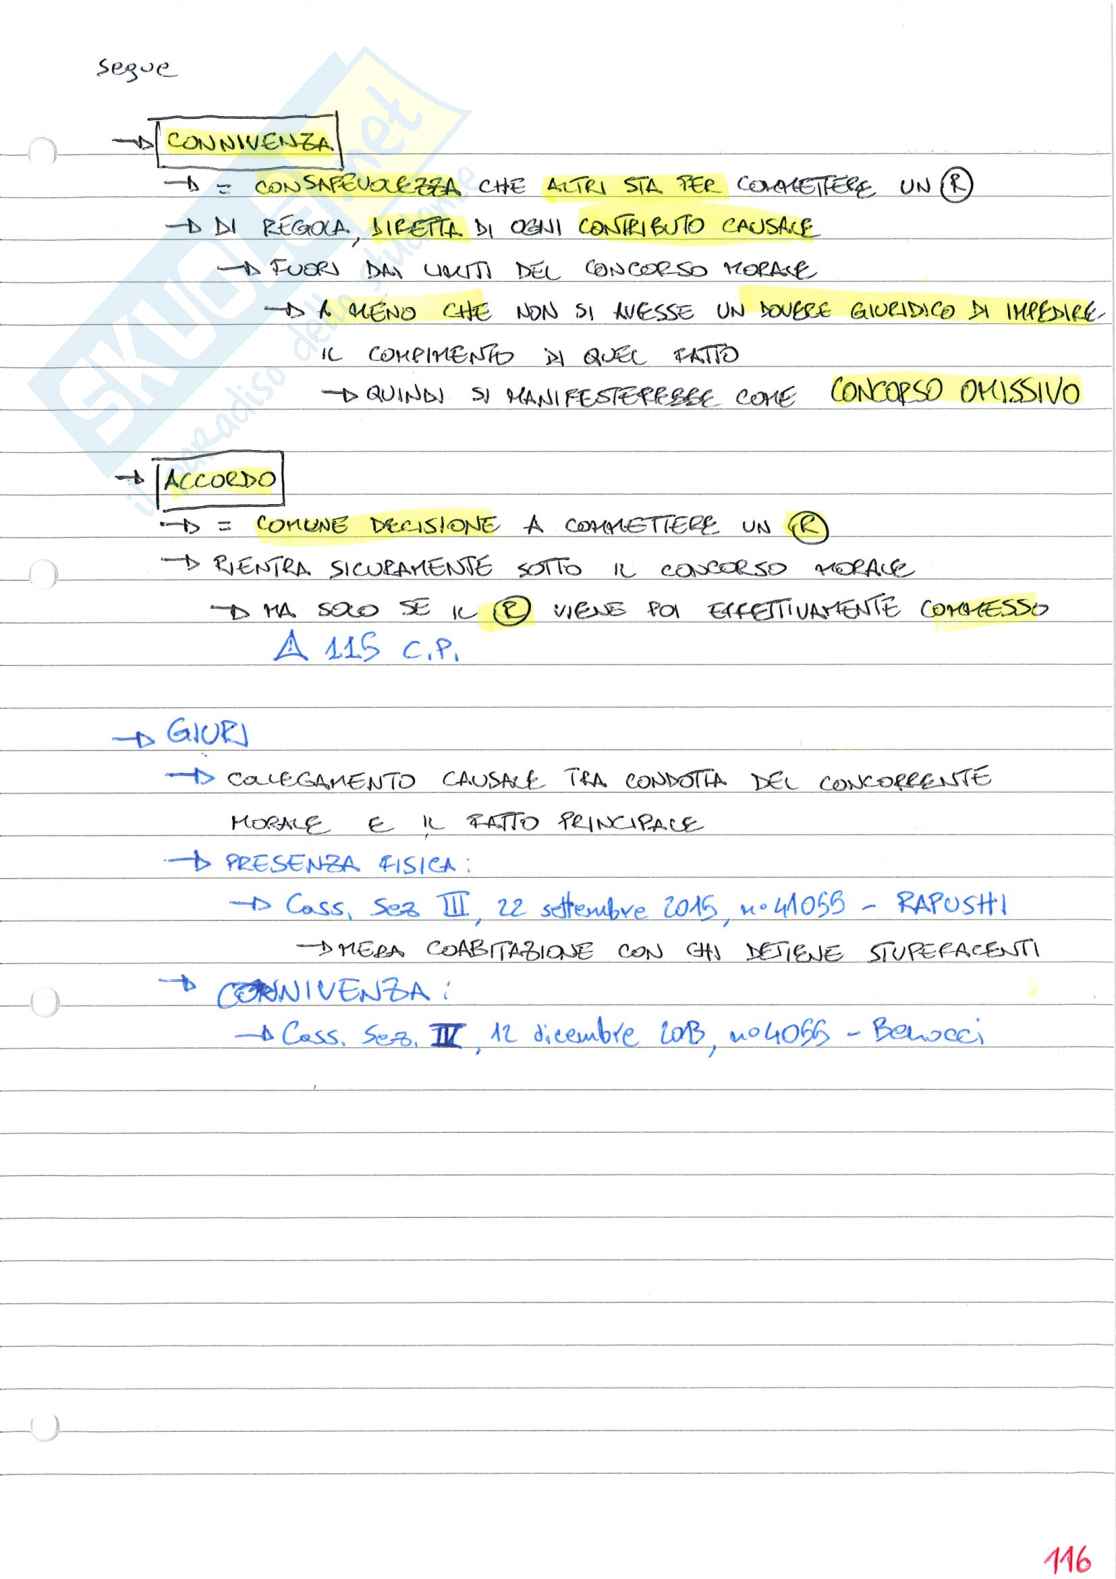 segue
→ CONNIVENZA
→ = CONSAPEVOLEZZA CHE ALTRI STA PER COMMETTERE UN Ⓡ
→ DI REGOLA, DIRETTA DI OGNI CONTRIBUTO CAUSALE
→ FUORI DAI LIMITI DEL CONCORSO MORALE
→ A MENO CHE NON SI AVESSE UN DOVERE GIURIDICO DI IMPEDIRE
IL COMPIMENTO DI QUEL FATTO
→ QUINDI SI MANIFESTEREBBE COME CONCORSO OMISSIVO
→ ACCORDO
→ = COMUNE DECISIONE A COMMETTERE UN Ⓡ
→ RIENTRA SICURAMENTE SOTTO IL CONCORSO MORALE
→ MA SOLO SE IL Ⓡ VIENE POI EFFETTIVAMENTE COMMESSO
⚠ 115 C.P.
→ GIURI
→ COLLEGAMENTO CAUSALE TRA CONDOTTA DEL CONCORRENTE
MORALE E IL FATTO PRINCIPALE
→ PRESENZA FISICA:
→ Cass. Sez III, 22 settembre 2015, n° 41055 - RAPUSHI
→ MERA COABITAZIONE CON CHI DETIENE STUPEFACENTI
→ CONNIVENZA:
→ Cass. Sez. IV, 12 dicembre 2013, n° 4055 - Benocci
116
SKUOLA.net
il paradiso dello studente